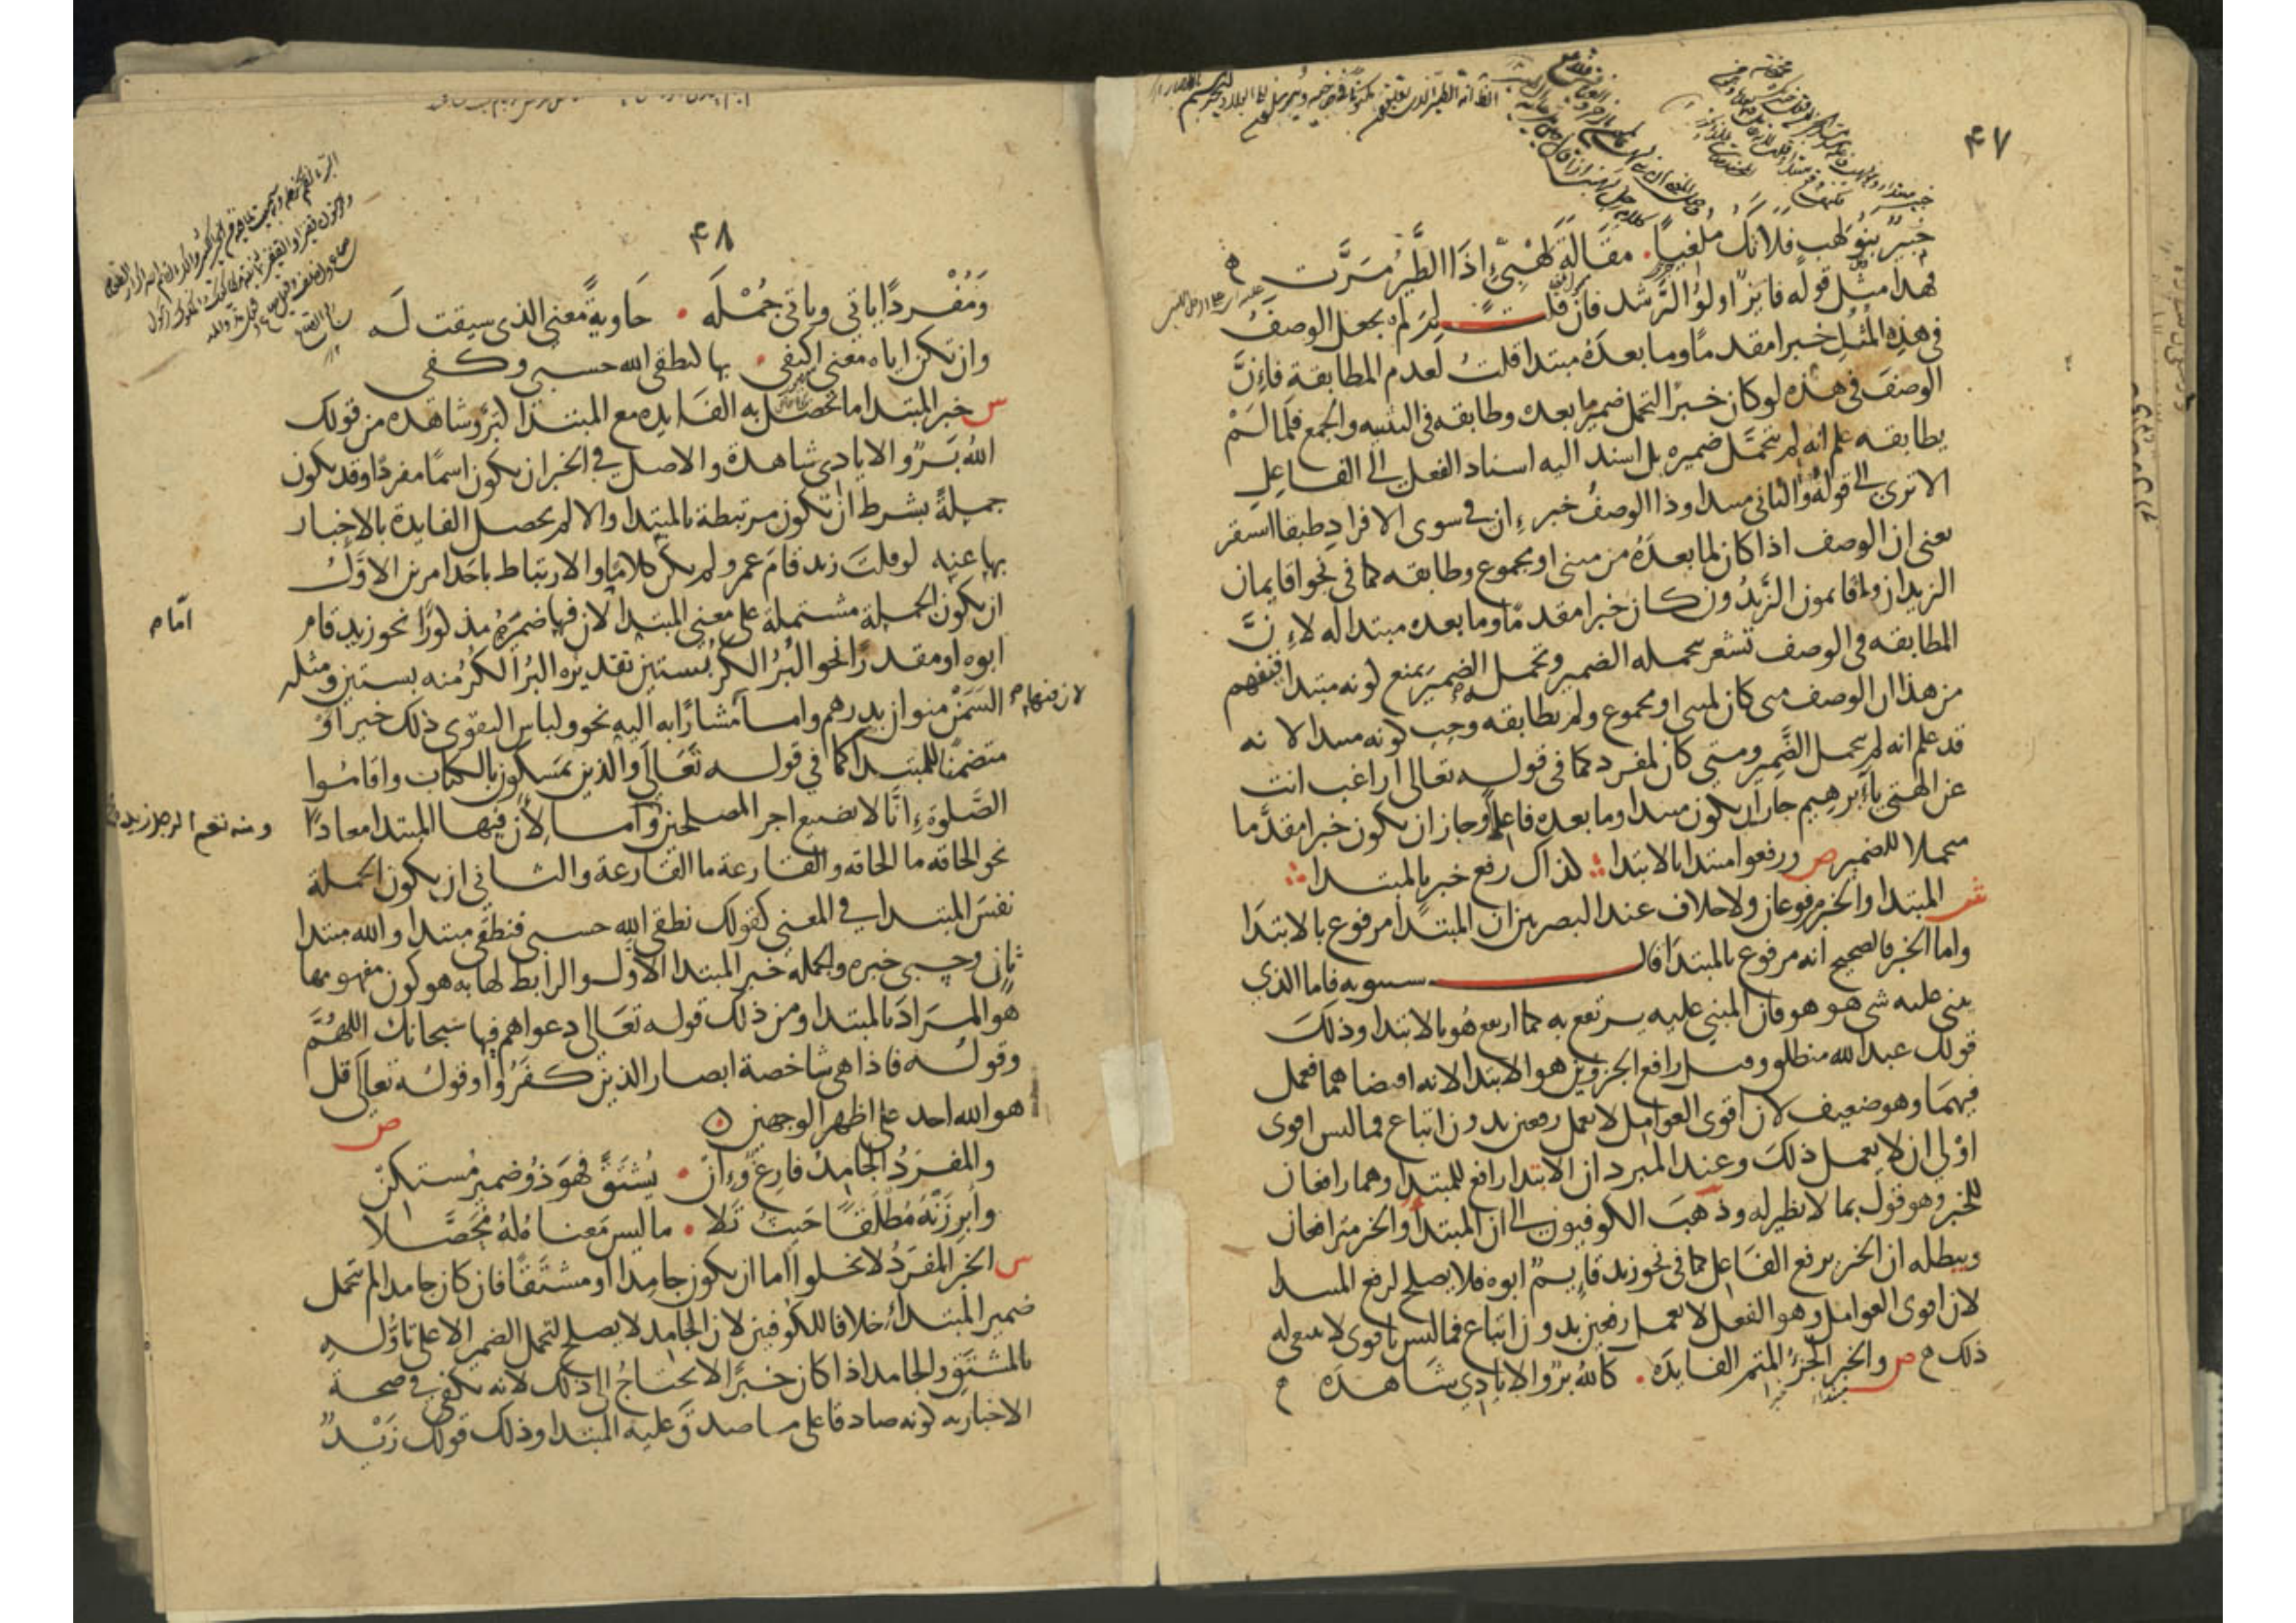 ٤٧
خبير بنو لهب فلا تك ملغيا مقالة لهبي إذا الطير مرت
فهذا مثل قوله فايز اولوا الرشد فان قلت لم لم يجعل الوصف
في هذه المثل خبرا مقدما وما بعده مبتدا قلت لعدم المطابقة فإن
الوصف في هذه لو كان خبرا لتحمل ضمير ما بعده وطابقه في التثنيه والجمع فلما لم
يطابقه علم انه لم يتحمل ضميره بل اسند اليه اسناد الفعل الى الفاعل
الا ترى الى قوله والثاني مبتدا وذا الوصف خبر إن في سوى الافراد طبقا استقر
يعني ان الوصف اذا كان لما بعده من مثنى او مجموع وطابقه كما في نحو اقايمان
الزيدان واقايمون الزيدون كان خبرا مقدما وما بعده مبتدا له لإن
المطابقه في الوصف تشعر بتحمله الضمير وتحمله الضمير يمنع كونه مبتدا فتفهم
من هذا ان الوصف متى كان لمثنى او مجموع ولم يطابقه وجب كونه مبتدا لانه
قد علم انه لم يتحمل الضمير ومتى كان لمفرد كما في قوله تعالى اراغب انت
عن الهتي يا ابرهيم جاز ان يكون مبتدا وما بعده فاعلا وجاز ان يكون خبرا مقدما
متحملا للضمير ص ورفعوا مبتدا بالابتدا كذاك رفع خبر بالمبتدا
ش المبتدا والخبر مرفوعان ولا خلاف عند البصريين ان المبتدا مرفوع بالابتدا
واما الخبر فالصحيح انه مرفوع بالمبتدا قال سيبويه فاما الذي
يبنى عليه شي هو هو فان المبني عليه يرتفع به كما ارتفع هو بالابتدا وذلك
قولك عبد الله منطلق وقيل رافع الجزوين هو الابتدا لانه اقتضاهما فعمل
فيهما وهو ضعيف لان اقوى العوامل لا يعمل رفعين بدون اتباع فما ليس اقوى
اولى ان لا يعمل ذلك وعند المبرد ان الابتدا رافع للمبتدا وهما رافعان
للخبر وهو قول بما لا نظير له وذهب الكوفيون الى ان المبتدا والخبر مترافعان
ويبطله ان الخبر يرفع الفاعل كما في نحو زيد قايم ابوه فلا يصلح لرفع المبتدا
لان اقوى العوامل وهو الفعل لا يعمل رفعين بدون اتباع فما ليس باقوى لا ينبغي له
ذلك ص والخبر الجزء المتم الفايده كالله بر والايادي شاهده
٤٨
ومفردا ياتي وياتي جمله حاوية معنى الذي سيقت له
وان تكن اياه معنى اكتفى بها كنطقي الله حسبي وكفى
س خبر المبتدا ما تحصل به الفايده مع المبتدا كبر وشاهده من قولك
الله بر والايادي شاهدة والاصل في الخبر ان يكون اسما مفردا وقد يكون
جملة بشرط ان تكون مرتبطة بالمبتدا والا لم يحصل الفايدة بالاخبار
بها عنه لو قلت زيد قام عمرو لم يكن كلاما والارتباط باحد امرين الاول
ان يكون الجملة مشتملة على معنى المبتدا لان فيها ضميره مذكورا نحو زيد قام
امام
ابوه او مقدرا نحو البر الكر بستين تقديره البر الكر منه بستين ومثله
السمن منوان بدرهم واما مشارا به اليه نحو ولباس التقوى ذلك خير او
لان فيها
متضمنا للمبتدا كما في قوله تعالى والذين يمسكون بالكتاب واقاموا
الصلوة إنا لا نضيع اجر المصلحين واما لأن فيها المبتدا معادا
ومنه نعم الرجل زيد
نحو الحاقه ما الحاقه والقارعة ما القارعة والثاني ان يكون الجملة
نفس المبتدا في المعنى كقولك نطقي الله حسبي فنطقي مبتدا والله مبتدا
ثان وحسبي خبره والجمله خبر المبتدا الاول والرابط لها به هو كون مفهومها
هو المراد بالمبتدا ومن ذلك قوله تعالى دعواهم فيها سبحانك اللهم
وقوله فاذا هي شاخصة ابصار الذين كفروا وقوله تعالى قل
هو الله احد على اظهر الوجهين ص
والمفرد الجامد فارغ وإن يشتق فهو ذو ضمير مستكن
وابرزنه مطلقا حيث تلا ما ليس معناه له محصلا
س الخبر المفرد لا يخلوا اما ان يكون جامدا او مشتقا فان كان جامدا لم يتحمل
ضمير المبتدا خلافا للكوفيين لان الجامد لا يصلح لتحمل الضمير الا على تاوله
بالمشتق والجامد اذا كان خبرا لا يحتاج الى ذلك لانه يكفي في صحة
الاخبار به كونه صادقا على ما صدق عليه المبتدا وذلك قولك زيد